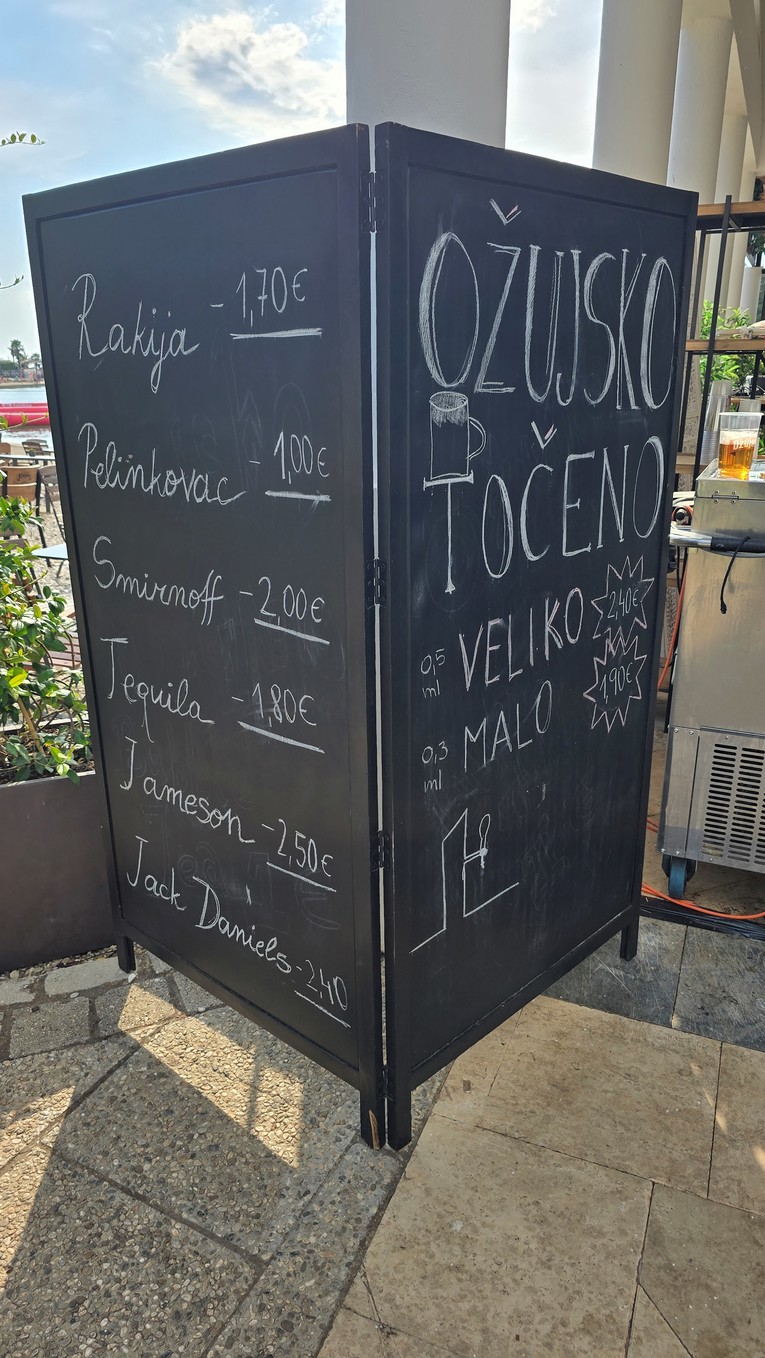 Rakija - 1,70€
Pelinkovac - 1,00€
Smirnoff - 2,00€
Tequila - 1,80€
Jameson - 2,50€
Jack Daniels - 2,40
OŽUJSKO
TOČENO
0,5 ml VELIKO 2,40€
0,3 ml MALO 1,90€